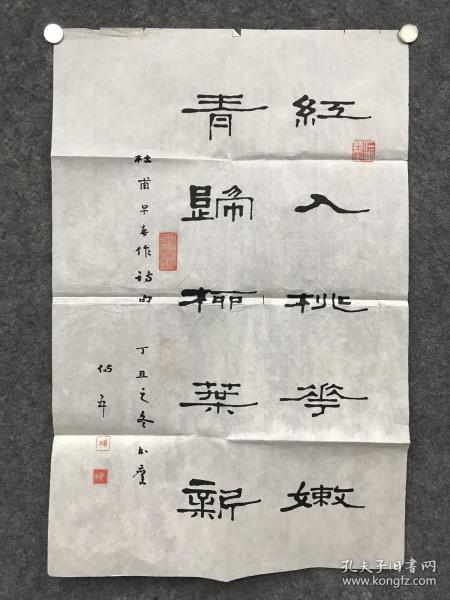 紅入桃花嫩
青歸柳葉新
杜甫早春作詩句 丁丑之冬
孔夫子旧书网
www.kongfz.com